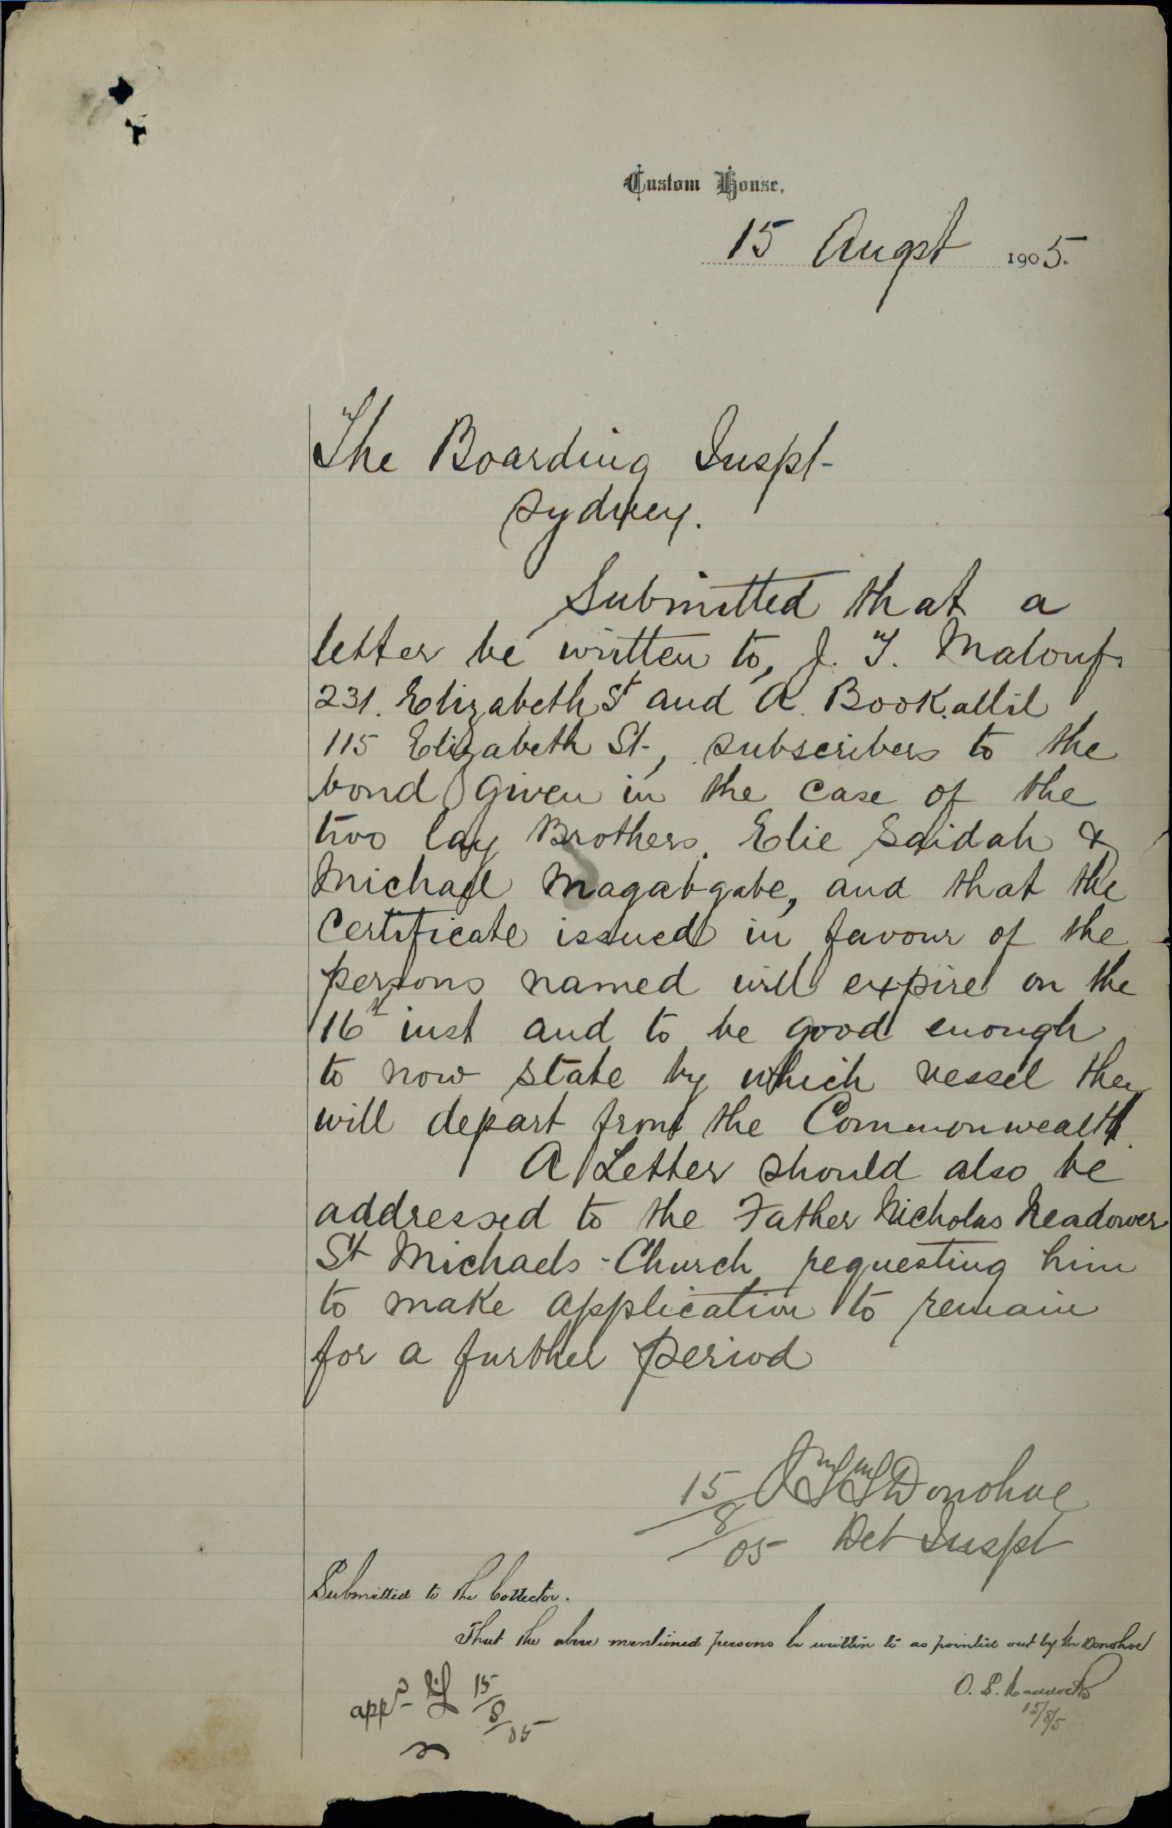 Custom House,
15 Augst 1905.
The Boarding Inspt-
Sydney.
Submitted that a
letter be written to, J. T. Malouf
231. Elizabeth St and A. Bookallil
115 Elizabeth St-, subscribers to the
bond given in the case of the
two lay Brothers. Elie Saidah &
Michael Magabgabe, and that the
Certificate issued in favour of the
persons named will expire on the
16th inst and to be good enough
to now state by which vessel they
will depart from the Commonwealth.
A Letter should also be
addressed to the Father Nicholas Meadower
St Michaels - Church requesting him
to make application to remain
for a further period
15/8/05 Donohoe
Det Inspt
Submitted to the Collector.
That the above mentioned persons be written to as pointed out by Mr Donohoe
O. S.
15/8/5
appd 15/8/05